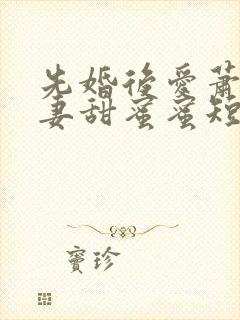 先婚後愛蕭
妻甜蜜蜜短
寶珍